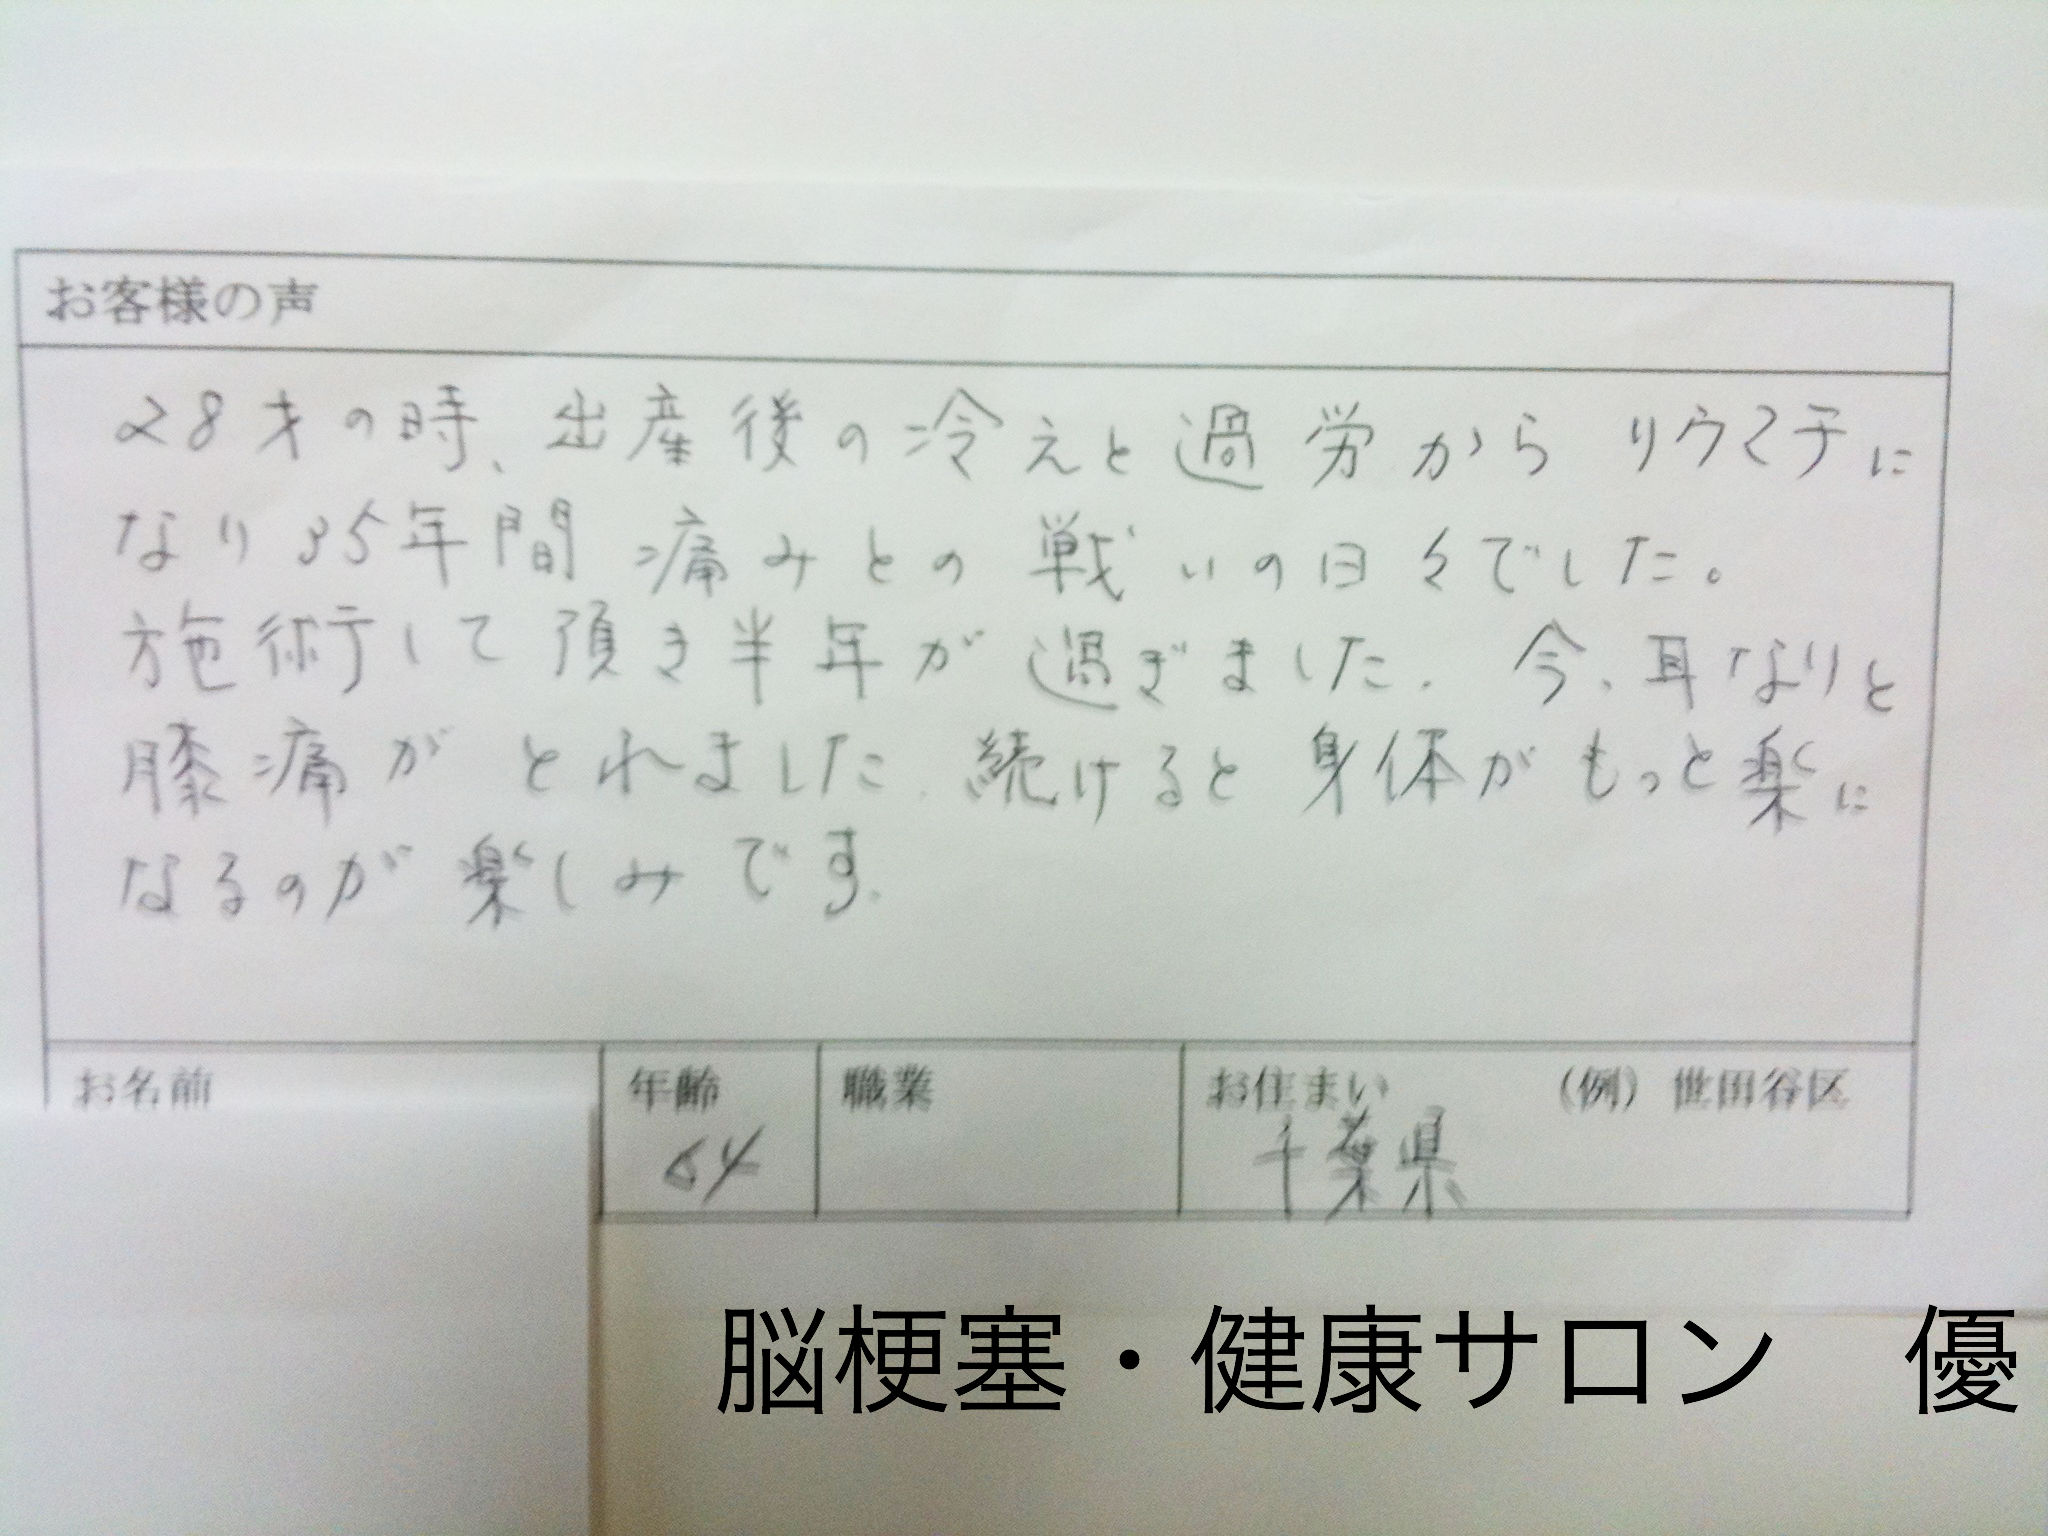 お客様の声
28才の時、出産後の冷えと過労からリウマチに
なり35年間痛みとの戦いの日々でした。
施術して頂き半年が過ぎました.今、耳なりと
膝痛がとれました.続けると身体がもっと楽に
なるのが楽しみです.
お名前 年齢 職業 お住まい (例) 世田谷区
64 千葉県
脳梗塞・健康サロン 優